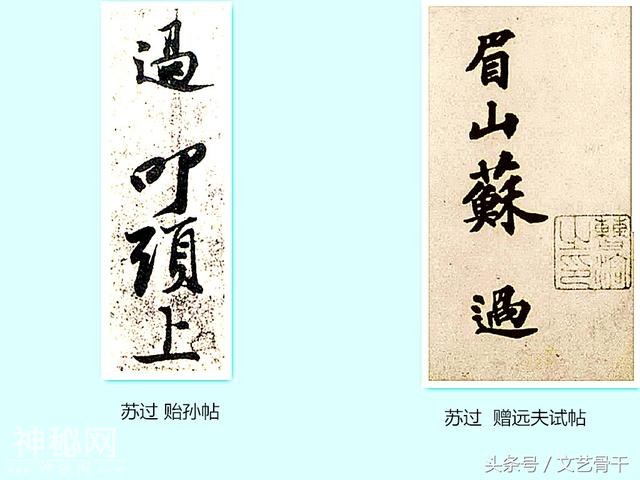 過
叩
頭
上
眉
山
蘇
過
苏过 贻孙帖
苏过 赠远夫试帖
神秘网
头条号 / 文艺骨干